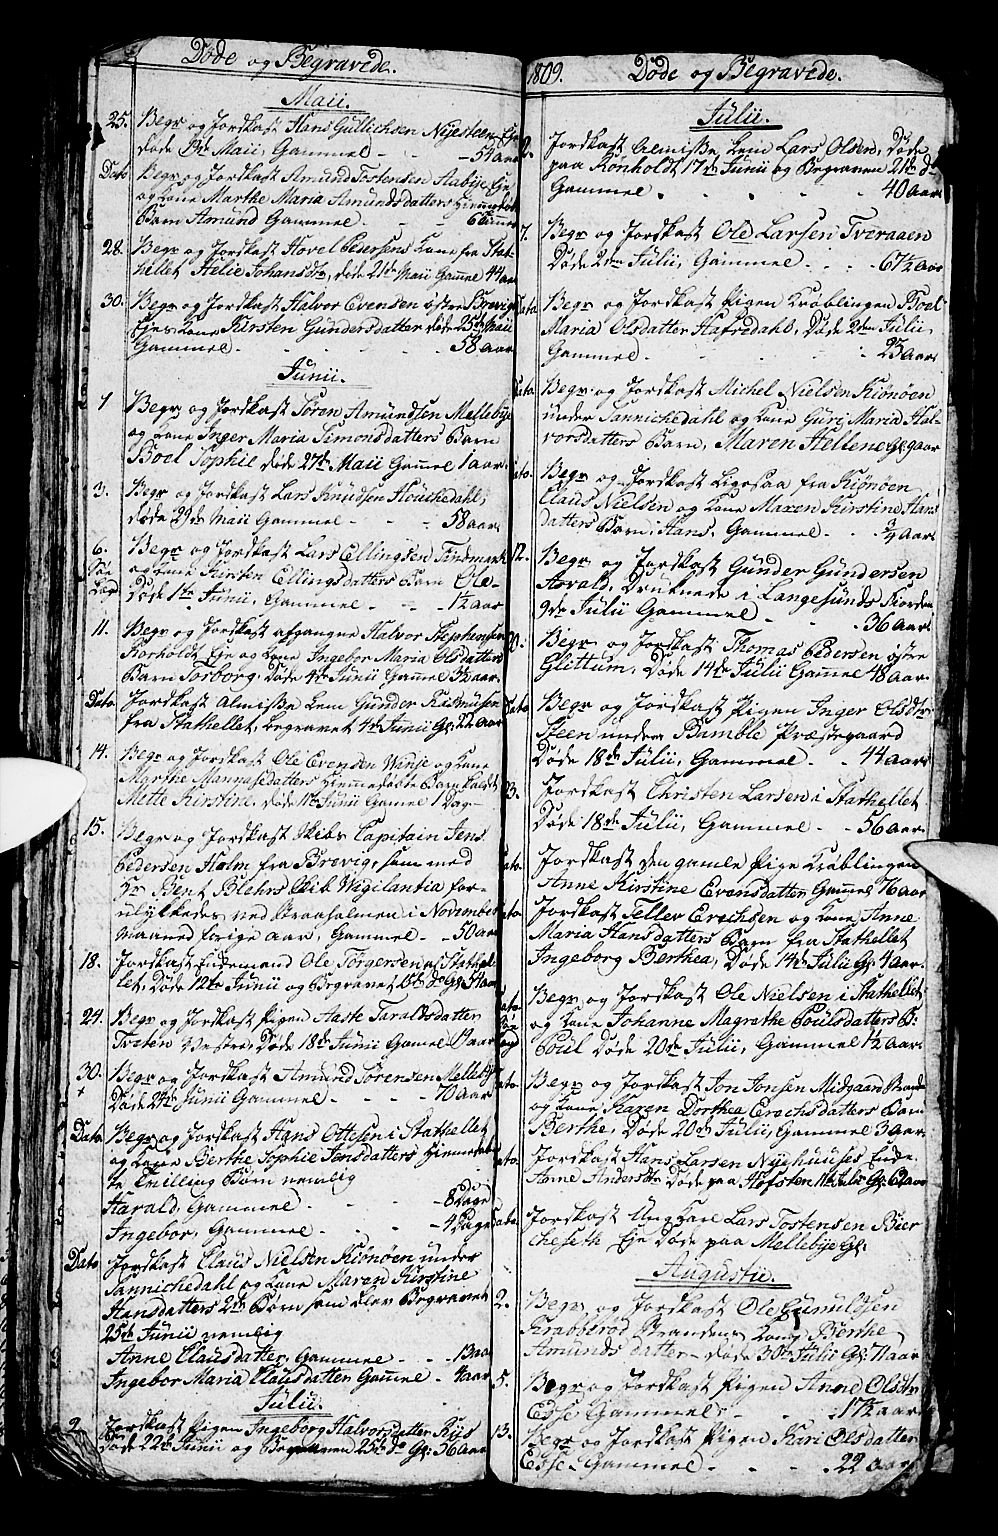 Døde og Begravede.
Maii.
25. Begr og Jordkast Hans Gullichsen Nyesteen Eje
Døde Maii, Gammel - - 54 aar
Dato Begr og Jordkast Amund Tostensen Aabye Eje
og Kone Marthe Maria Amundsdatters Hiemmedøbt
Barn Amund Gammel - - 6 Timer
28. Begr og Jordkast Hovel Pedersens Kone fra Stat-
hellet Helie Johansdr, døde 21de Maii Gammel 44 aar
30. Begr og Jordkast Halvor Evensen østre Brevigs
Eje Kone Kirsten Gundersdatter døde 25de Maii
Gammel - - - - 58 aar
Junii.
1 Begr og Jordkast Søren Amundsen Mellebye
og Kone Inger Maria Simonsdatters Barn
Boel Sophie døde 27de Maii Gammel 1 aar
3. Begr og Jordkast Lars Knudsen Houchedahl,
døde 29de Maii Gammel - - - 58 aar
6. Begr og Jordkast Lars Ellingsen Findmark
og Kone Kirsten Ellingsdatters Barn Ole-
Døde 1te Junii, Gammel - - 1½ aar
11. Begr og Jordkast afgangne Halvor Stephensen
Rorholdt Eje og Kone Ingebor Maria Olsdatters
Barn Torborg, Døde 4de Junii Gammel ½ aar
Dato Jordkast Almisse Lem Gunder Rasmusen
fra Stathellet, begravet 4de Junii Gl: 22 aar
14. Begr og Jordkast Ole Evensen Vinje og Kone
Marthe Mannasedatters Hiemmedøbte Barn kaldet
Mette Kirstine, døde 11te Junii Gamel 1 Dag-
15. Begr og Jordkast Skibs Capitain Jens
Pedersen Holm fra Brevig, som med
Hr Bent Blehrs Skib Vigilantia for-
ulykkedes ved Braaholmen i November
maaned forige aar, Gammel - - 50 aar
18. Jordkast Enkemand Ole Torgersen af Stathel-
let, Døde 12te Junii og Begravet 15de do Gl: 54 aar
24. Begr og Jordkast Pigen Aaste Taraldsdatter
Tveten Vestre, Døde 18de Junii Gamel 19 aar
30. Begr og Jordkast Amund Sørensen Mellebye
Døde 24de Junii Gammel - - - 70 aar
Dato Begr og Jordkast Hans Ottesen i Stathellet
og Kone Berthe Sophie Jensdatters Hiemmedøb-
te Tvilling Børn nemlig
Harald, Gammel - - - 8 Dage
Ingebor, Gammel - - - 4 Dage
Dato Jordkast Claus Nielsen Kiønøen under
Sannichedahl og Kone Maren Kirstine
Hansdatters 2de Børn som blev Begravet
25de Junii nemlig
Anne Clausdatter, Gammel - - 13 aar
Ingebor Maria Clausdatter Gammel - 4 aar
Julii.
2 Jordkast Pigen Ingeborg Halvorsdatter Rijs
Døde 22de Junii og Begraven 25de do Gl: 36 aar
1809. Døde og Begravede.
Julii.
2. Jordkast Almisse Lem Lars Olsen, Døde
paa Rønholdt 17de Junii og Begraven 21de do
Gammel - - - - 40 aar
7. Begr og Jordkast Ole Larsen Tveraaen
Døde 2den Julii, Gammel - - - 67½ aar
Dato Begr og Jordkast Pigen Krøblingen Boel
Maria Olsdatter Hafsdahl, Døde 2den Julii
Gammel - - - - 23 aar
Dato Begr. og Jordkast Michel Nielsen Kiønøen
under Sannichedahl og Kone Guri Maria Hal-
vorsdatters Barn, Maren Hellene Gl: 9 aar
Dato. Begr og Jordkast Ligesaa fra Kiønøen
Claus Nielsen og Kone Maren Kirstine Hans
datters Barn, Hans, Gammel - - ¾ aar
12. Begr og Jordkast Gunder Gundersen
Asvald, Druknede i Langesunds Fiorden
9de Julii Gammel - - - 36 aar
20. Begr og Jordkast Thomas Pedersen østre
Glittum, Døde 14de Julii Gammel 48 aar
Dato Begr og Jordkast Pigen Inger Olsdtr
Steen under Bamble Præstegaard
Døde 18de Julii, Gammel - - 44 aar
23. Jordkast Christen Larsen i Stathellet
Døde 18de Julii, Gammel - - 56 aar
Dato Jordkast den gamle Pige Krøblingen
Anne Kirstine Evensdatter Gammel 76 aar
Dato Jordkast Tellev Erochsen og Kone Anne
Maria Hansdatters Barn fra Stathellet
Ingeborg Berthea, Døde 14de Julii Gl: 4 aar.
Dato Begr og Jordkast Ole Nielsen i Stathellet
og Kone Johanne Magrethe Poulsdatters B:
Poul Døde 20de Julii, Gammel 1½ aar
Dato Begr og Jordkast Jon Jonsen Midgaard
og Kone Karen Dorthea Erochsdatters Barn
Berthe, Døde 20de Julii, Gammel 3 aar
Dato. Jordkast Hans Larsen Nyehuuses Enke
Anne Andersdr Døde paa Hofsten 11te Julii Gl: 62 aar
Dato Jordkast Ung Karl Lars Tostensen Bier
cheseth Eje Døde paa Mellebye Gl:
Augustii.
2. Begr og Jordkast Ole Gunuldsen
Krabberød Strandens Kone Berthe
Amundsdatter - døde 30te Julii Gl: 71 aar
5. Begr og Jordkast Pigen Anne Olsdtr
Esse Gammel - - - 17½ aar
13. Begr og Jordkast Pigen Kari Olsdatter
Esse - Gammel - - - 22 aar